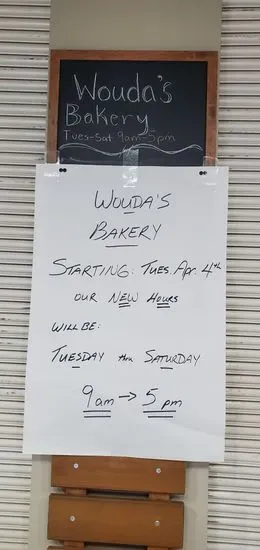 Wouda's
Bakery
Tues-Sat 9am-5pm
WOUDA'S
BAKERY
STARTING: TUES. Apr. 4th
OUR NEW HOURS
WILL BE:
TUESDAY thru SATURDAY
9am → 5pm